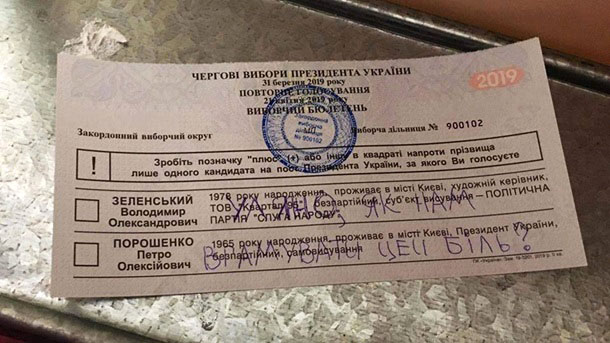 ЧЕРГОВІ ВИБОРИ ПРЕЗИДЕНТА УКРАЇНИ
31 березня 2019 року
ПОВТОРНЕ ГОЛОСУВАННЯ
21 квітня 2019 року
ВИБОРЧИЙ БЮЛЕТЕНЬ
2019
Закордонний виборчий округ
Закордонна
виборча
дільниця
№ 900102
Виборча дільниця № 900102
! Зробіть позначку "плюс" (+) або іншу в квадраті напроти прізвища
лише одного кандидата на пост Президента України, за якого Ви голосуєте
ЗЕЛЕНСЬКИЙ
Володимир
Олександрович
1978 року народження, проживає в місті Києві, художній керівник,
ТОВ "Квартал 95", безпартійний, суб'єкт висування – ПОЛІТИЧНА
ПАРТІЯ "СЛУГА НАРОДУ"
УЛЯНО, ЯК НАМ
ПОРОШЕНКО
Петро
Олексійович
1965 року народження, проживає в місті Києві, Президент України,
безпартійний, самовисування
ВГАМУВАТИ ЦЕЙ БІЛЬ?